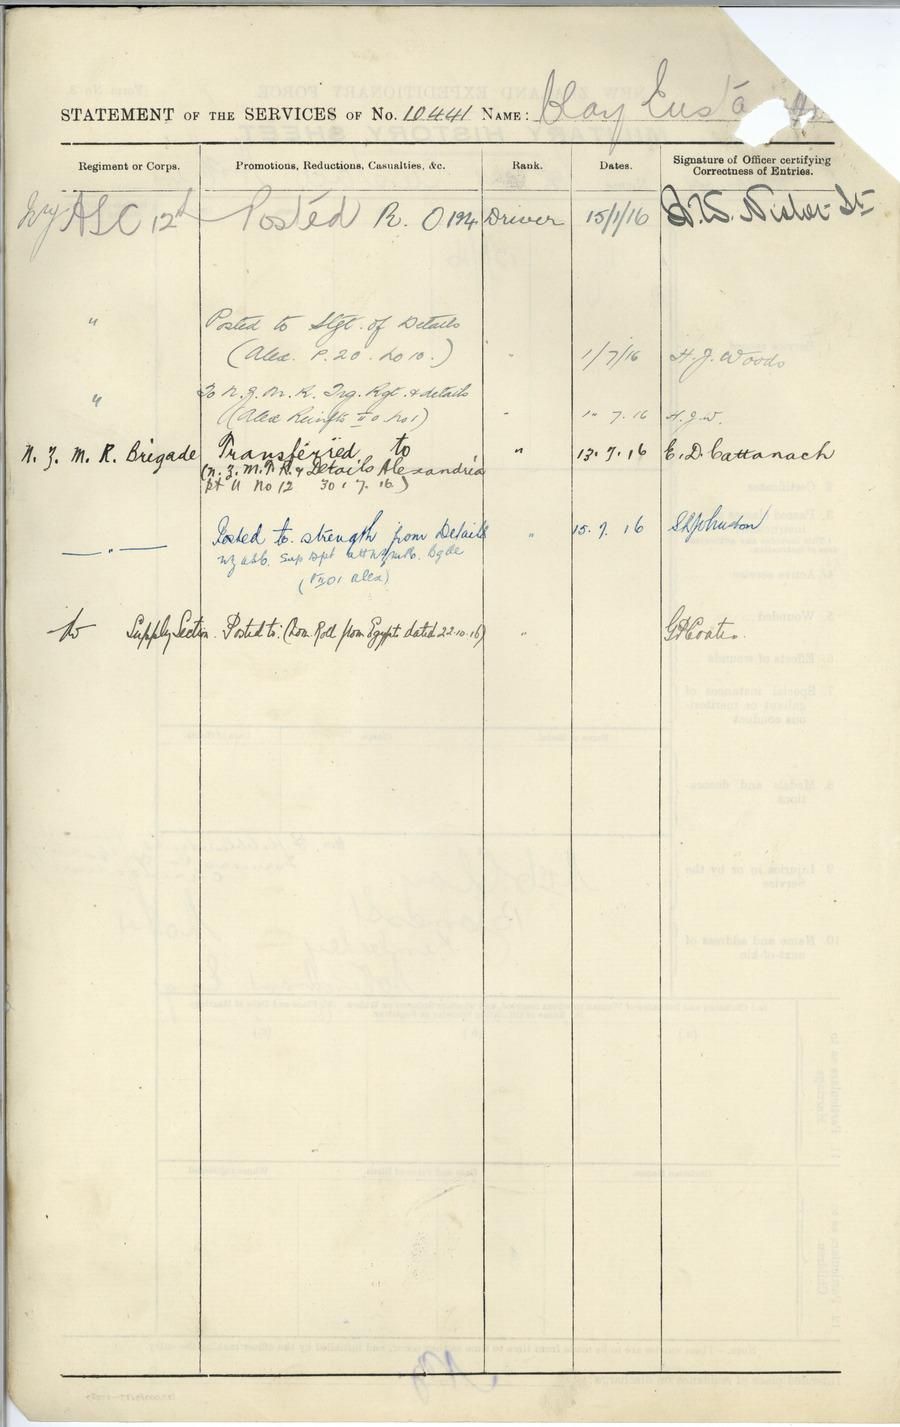 STATEMENT OF THE SERVICES OF No. 10441 NAME: Clay Eusta
Regiment or Corps. Promotions, Reductions, Casualties, &c. Rank. Dates. Signature of Officer certifying Correctness of Entries.
ASC 12th Posted R. O 194 Driver 15/1/16
" Posted to Stgt. of Details
(Alex. P. 20. No 10.) " 1/7/16 H. J. Woods
" To N. Z. M. R. Trg. Rgt. & details
(Alex Reinfts II 0 No 1) " 1" 7. 16 H. J. W.
N. Z. M. R. Brigade Transferred to " 13. 7. 16 E. D. Cattanach
(N. Z. M. T. R. & Details Alexandria
Pt II No 12 30. 7. 16)
—"— Posted to strength from Details " 15. 7. 16 S Johnston
Sup Dpt Bgde
Alex)
to Supply Section. Posted to: (Nom. Roll from Egypt dated 22.10.16) " Coates.